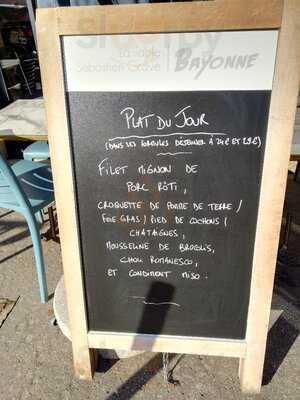 La Table
Sébastien Gravé
BAYONNE
PLAT DU JOUR
(DANS LES FORMULES DEJEUNER À 24€ ET 29€)
FILET MIGNON DE
PORC RÔTI,
CROQUETTE DE POMME DE TERRE /
FOIE GRAS / PIED DE COCHONS /
CHATAIGNES,
MOUSSELINE DE BROCOLIS,
CHOU ROMANESCO,
ET CONDIMENT MISO.